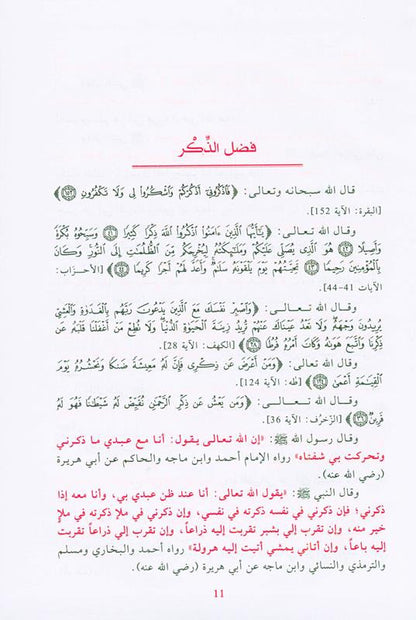 فضل الذِّكْر
قال الله سبحانه وتعالى: ﴿فَاذْكُرُونِي أَذْكُرْكُمْ وَاشْكُرُوا لِي وَلَا تَكْفُرُونِ ﴿١٥٢﴾﴾
[البقرة: الآية 152].
وقال الله تعالى: ﴿يَٰٓأَيُّهَا ٱلَّذِينَ ءَامَنُوا ٱذْكُرُوا ٱللَّهَ ذِكْرًا كَثِيرًا ﴿٤١﴾ وَسَبِّحُوهُ بُكْرَةً
وَأَصِيلًا ﴿٤٢﴾ هُوَ ٱلَّذِى يُصَلِّى عَلَيْكُمْ وَمَلَٰٓئِكَتُهُ لِيُخْرِجَكُم مِّنَ ٱلظُّلُمَٰتِ إِلَى ٱلنُّورِ وَكَانَ
بِٱلْمُؤْمِنِينَ رَحِيمًا ﴿٤٣﴾ تَحِيَّتُهُمْ يَوْمَ يَلْقَوْنَهُ سَلَٰمٌ وَأَعَدَّ لَهُمْ أَجْرًا كَرِيمًا ﴿٤٤﴾﴾ [الأحزاب:
الآيات 41-44].
وقال الله تعالى: ﴿وَٱصْبِرْ نَفْسَكَ مَعَ ٱلَّذِينَ يَدْعُونَ رَبَّهُم بِٱلْغَدَوٰةِ وَٱلْعَشِىِّ
يُرِيدُونَ وَجْهَهُ وَلَا تَعْدُ عَيْنَاكَ عَنْهُمْ تُرِيدُ زِينَةَ ٱلْحَيَوٰةِ ٱلدُّنْيَا وَلَا تُطِعْ مَنْ أَغْفَلْنَا قَلْبَهُ عَن
ذِكْرِنَا وَٱتَّبَعَ هَوَىٰهُ وَكَانَ أَمْرُهُ فُرُطًا ﴿٢٨﴾﴾ [الكهف: الآية 28].
وقال الله تعالى: ﴿وَمَنْ أَعْرَضَ عَن ذِكْرِى فَإِنَّ لَهُ مَعِيشَةً ضَنكًا وَنَحْشُرُهُ يَوْمَ
ٱلْقِيَٰمَةِ أَعْمَىٰ ﴿١٢٤﴾﴾ [طه: الآية 124].
وقال الله تعالى: ﴿وَمَن يَعْشُ عَن ذِكْرِ ٱلرَّحْمَٰنِ نُقَيِّضْ لَهُ شَيْطَٰنًا فَهُوَ لَهُ
قَرِينٌ ﴿٣٦﴾﴾ [الزّخرُف: الآية 36].
وقال رسول الله ﷺ: «إن الله تعالى يقول: أنا مع عبدي ما ذكرني
وتحركت بي شفتاه» رواه الإمام أحمد وابن ماجه والحاكم عن أبي هريرة
(رضي الله عنه).
وقال النبي ﷺ: «يقول الله تعالى: أنا عند ظن عبدي بي، وأنا معه إذا
ذكرني؛ فإن ذكرني في نفسه ذكرته في نفسي، وإن ذكرني في ملإ ذكرته في ملإ
خير منه، وإن تقرب إلي بشبر تقربت إليه ذراعاً، وإن تقرب إلي ذراعاً تقربت
إليه باعاً، وإن أتاني يمشي أتيت إليه هرولة» رواه أحمد والبخاري ومسلم
والترمذي والنسائي وابن ماجه عن أبي هريرة (رضي الله عنه).
11